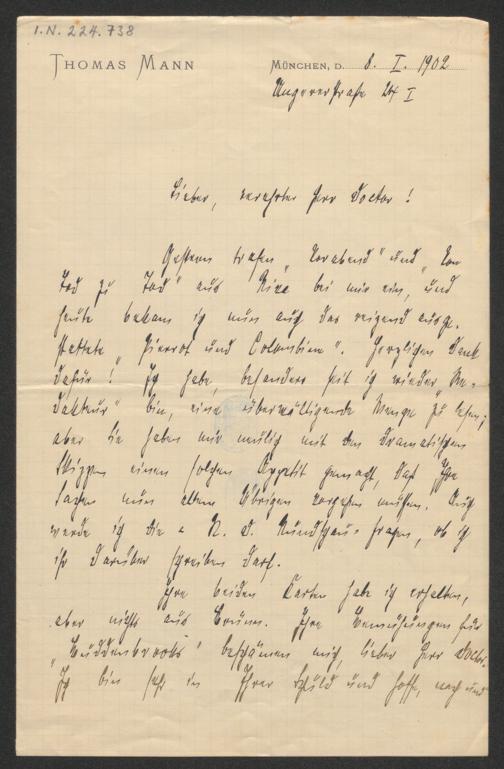 I.N. 224.738
THOMAS MANN
MÜNCHEN, D. 8. I. 1902
Ungererstraße 24 I
Lieber, verehrter Herr Doctor!
Gestern trafen „Vorabend" und „Von
Tod zu Tod" aus Riva bei mir ein, und
heute bekam ich nun auch das reizend ausge-
stattete „Pierrot und Colombine". Herzlichen Dank
dafür! Ich habe, besonders seit ich wieder „Re-
dakteur" bin, eine überwältigende Menge zu lesen;
aber Sie haben mir neulich mit den dramatischen
Skizzen einen solchen Appetit gemacht, daß Ihre
Sachen nun allem Übrigen vorgehen müssen. Auch
werde ich die N. D. Rundschau fragen, ob ich
ihr darüber schreiben darf.
Ihre beiden Karten habe ich erhalten,
aber nichts aus Brünn. Ihre Bemühungen für
„Buddenbrooks" beschämen mich, lieber Herr Doctor.
Ich bin sehr in Ihrer Schuld und hoffe, nach und